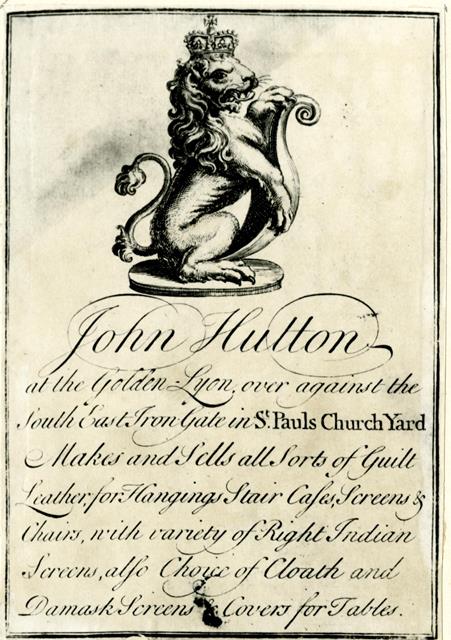 John Hutton
at the Golden-Lyon, over against the
South East Iron Gate in St. Pauls Church Yard
Makes and Sells all Sorts of Guilt
Leather, for Hangings Stair Cases, Screens &
Chairs, with variety of Right Indian
Screens, also Choice of Cloath and
Damask Screens & Covers for Tables.